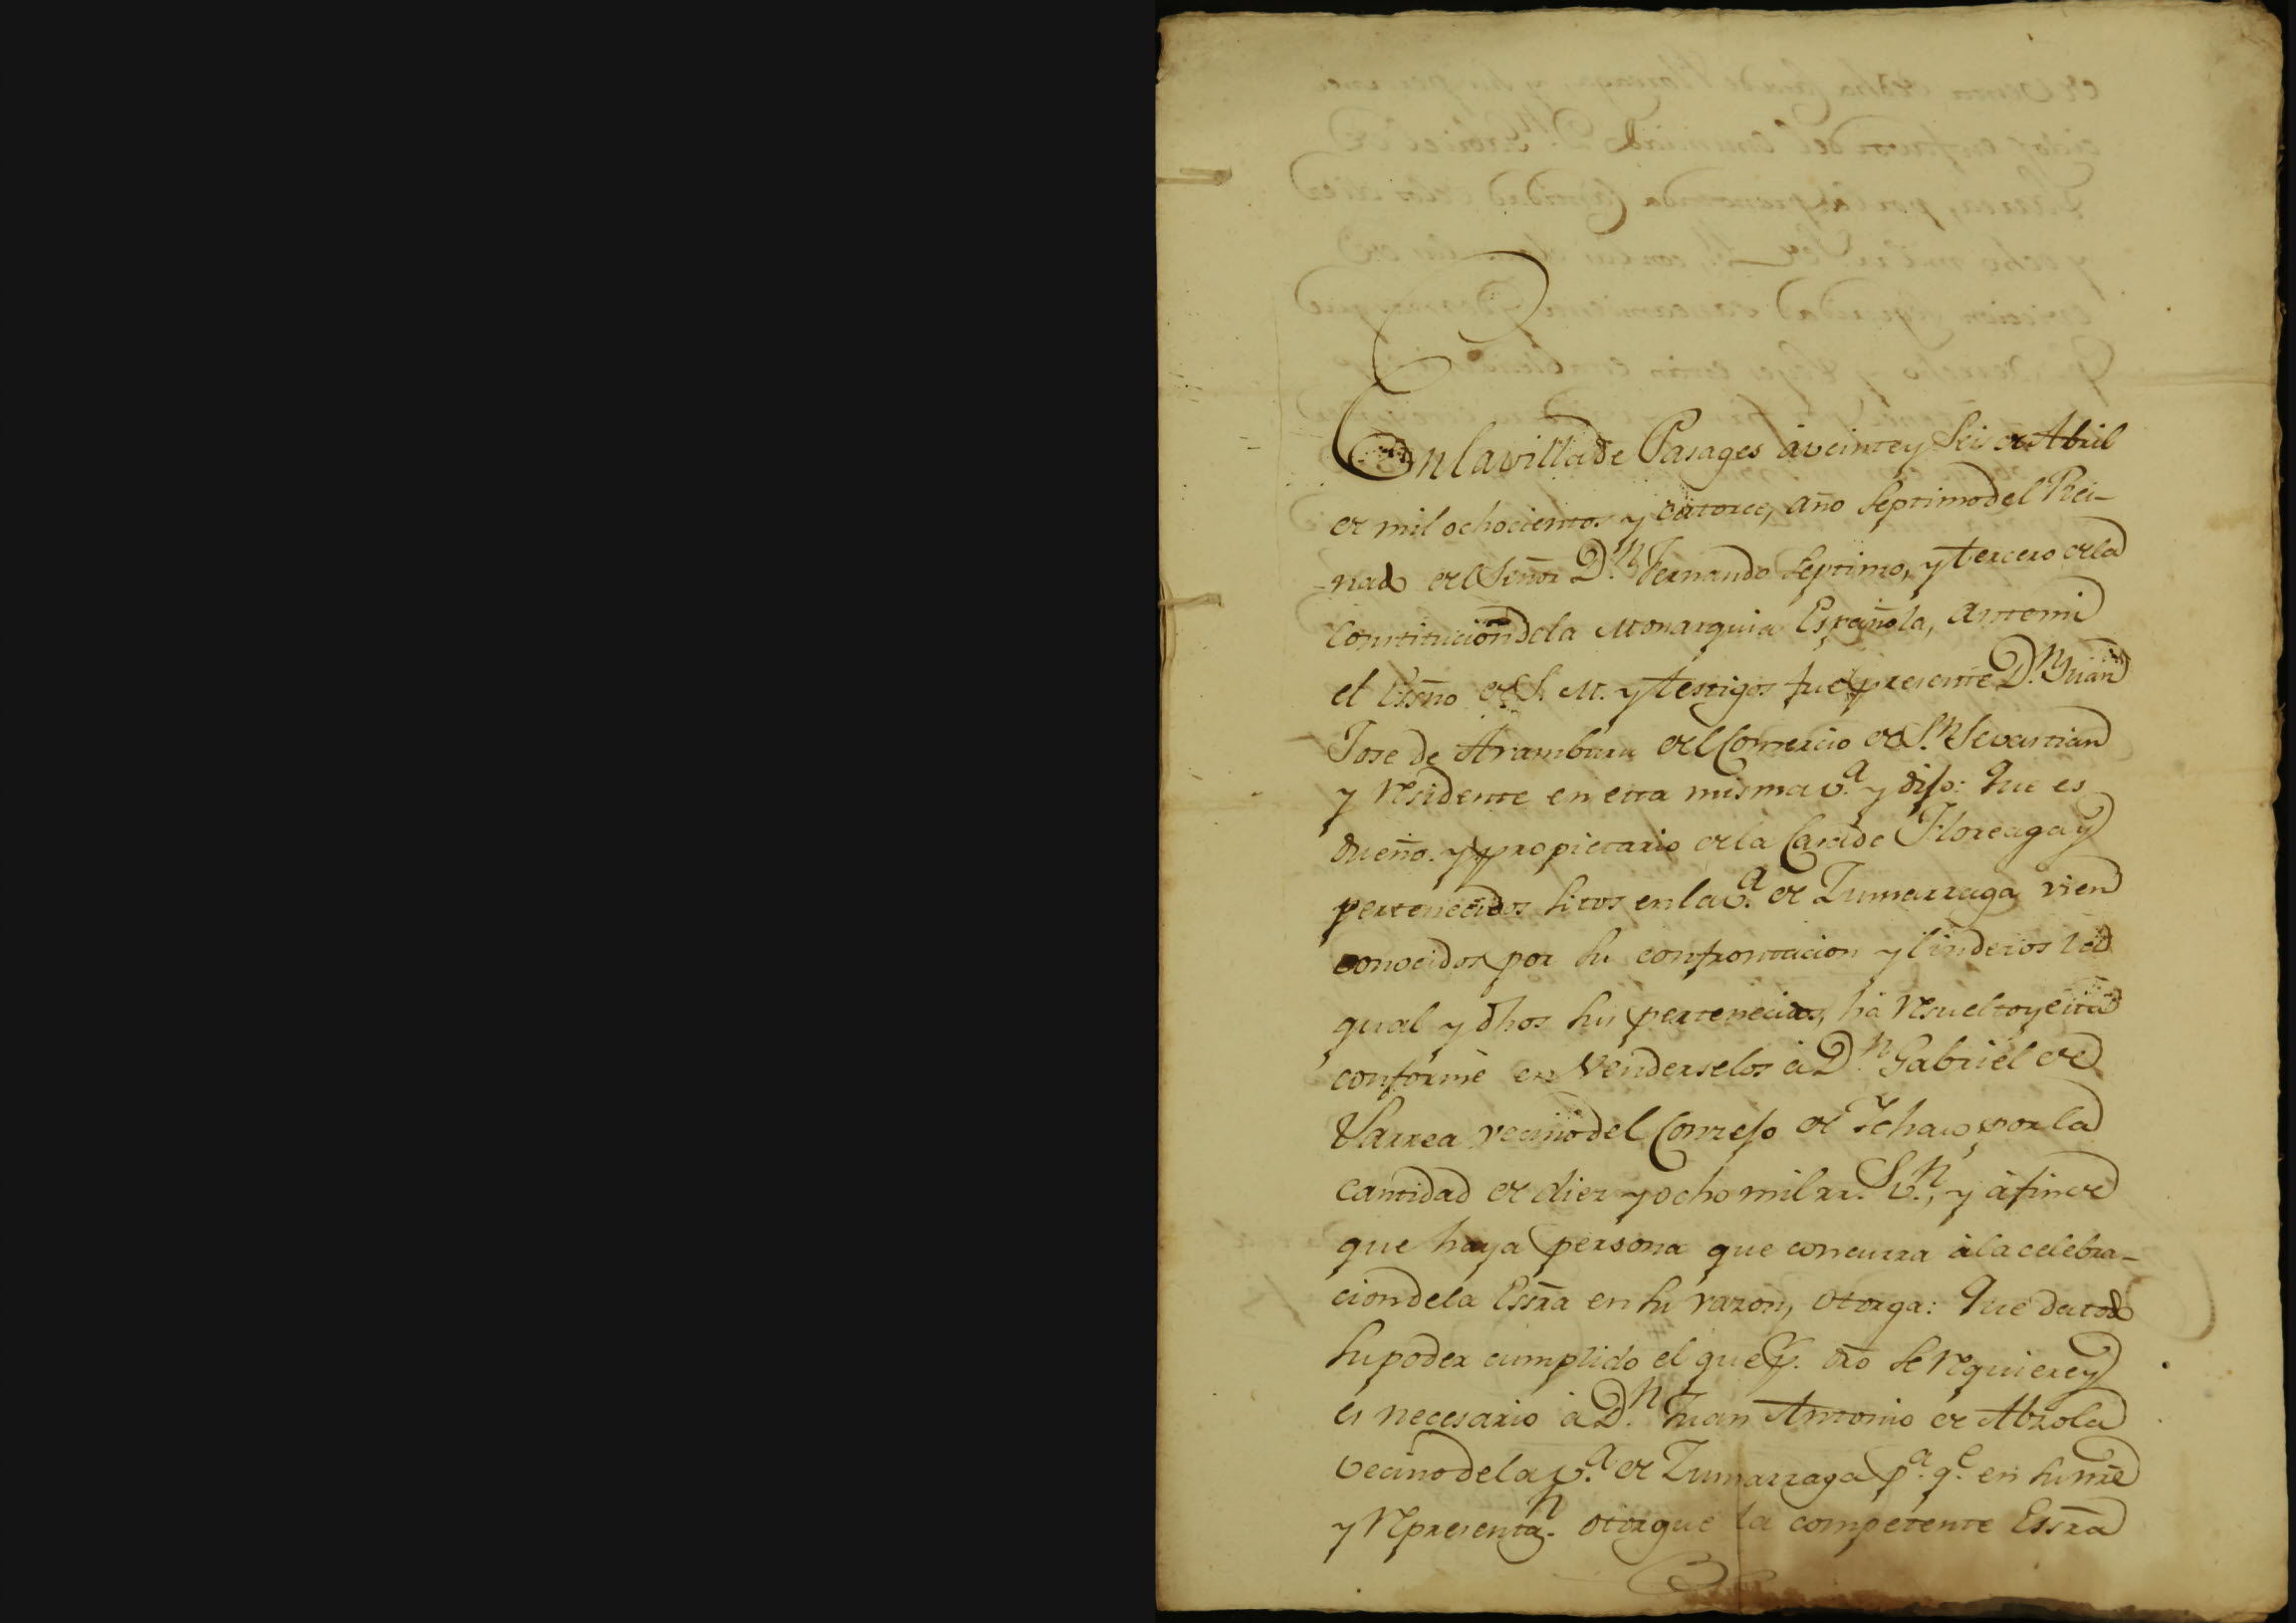 En la villa de Pasages à veinte y seis de Abril
de mil ochocientos y catorce, año septimo del Rei-
nado del Señor D.n Fernando septimo, y tercero de la
Constitución de la Monarquia Española, ante mi
el Essno de S. M. y testigos fue presente D.n Juan
Jose de Aramburu del Comercio de S.n Sevastian
y residente en esta misma v.a y dijo: Que es
dueño y propietario de la Casa de Floreaga y
pertenecidos sitos en la v.a de Zumarraga vien
conocidos por su confrontacion y linderos la
qual y dhos sus pertenecidos, hà resuelto y està
conforme en venderselos à D.n Gabriel de
Ularrea vecino del Conzejo de Ychaso por la
cantidad de diez y ocho mil rr.s v.n, y à fin de
que haya persona que concurra à la celebra-
cion de la Essra en su razon, otorga: Que da todo
su poder cumplido el que p. dro se requiere y
es necesario à D.n Juan Antonio de Abrola
vecino de la v.a de Zumarraga p.a q.e en su nre
y representa.n otorgue la competente Essra